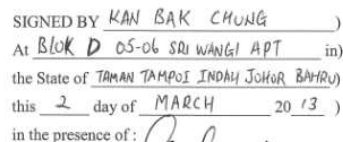 SIGNED BY KAN BAK CHUNG )
At BLOK D 05-06 SRI WANGI APT in)
the State of TAMAN TAMPOI INDAH JOHOR BAHRU)
this 2 day of MARCH 20 13 )
in the presence of :